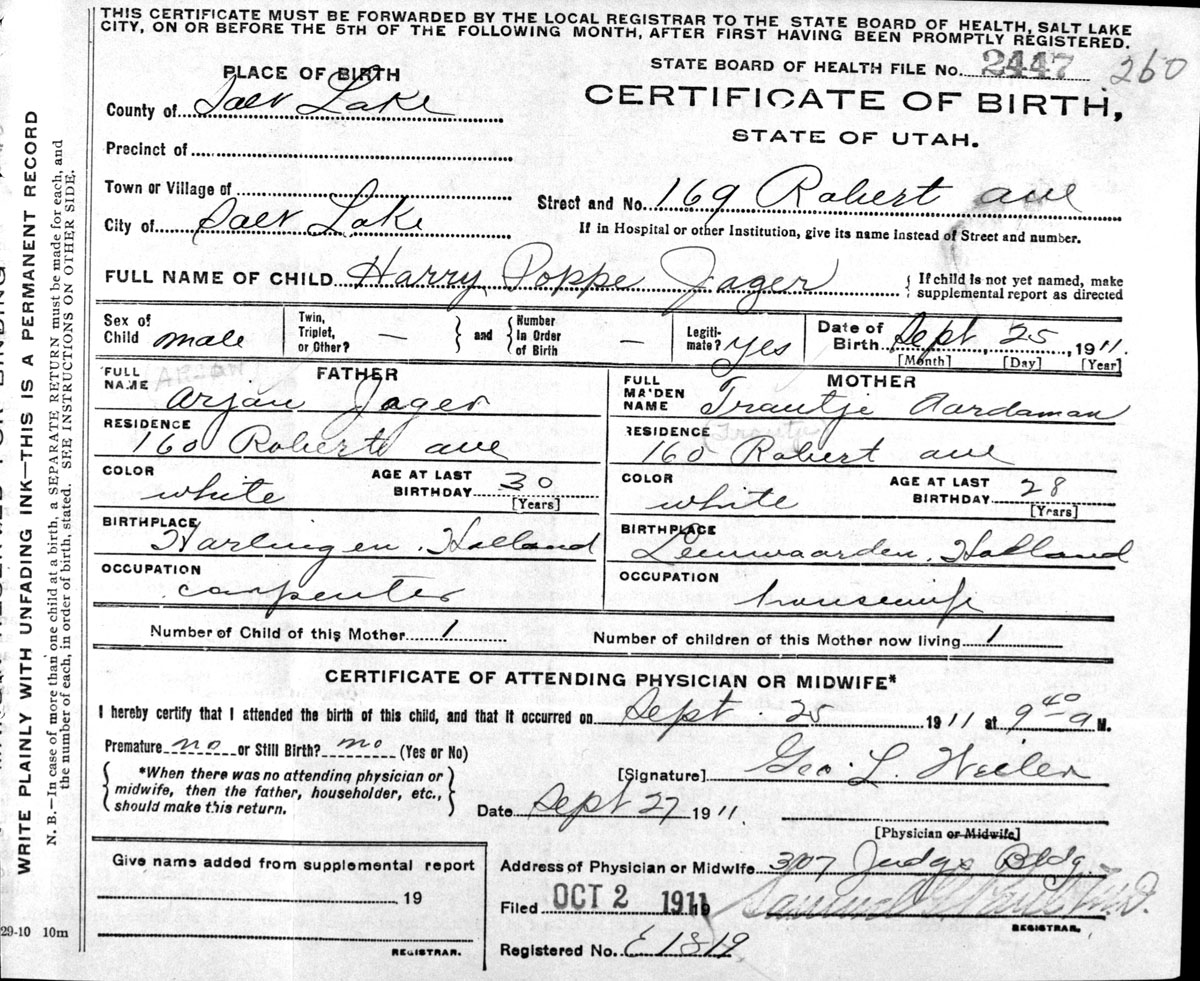 THIS CERTIFICATE MUST BE FORWARDED BY THE LOCAL REGISTRAR TO THE STATE BOARD OF HEALTH, SALT LAKE
CITY, ON OR BEFORE THE 5TH OF THE FOLLOWING MONTH, AFTER FIRST HAVING BEEN PROMPTLY REGISTERED.
STATE BOARD OF HEALTH FILE No. 2447 260
PLACE OF BIRTH
CERTIFICATE OF BIRTH,
STATE OF UTAH.
County of Salt Lake
Precinct of
Town or Village of
Street and No. 169 Robert ave
City of Salt Lake
If in Hospital or other Institution, give its name instead of Street and number.
FULL NAME OF CHILD Harry Poppe Jager
If child is not yet named, make
supplemental report as directed
Sex of Child male
Twin, Triplet, or Other? —
and Number In Order of Birth —
Legitimate? Yes
Date of Birth Sept 25, 1911.
[Month] [Day] [Year]
FATHER
FULL NAME Arjan Jager
ARJAN
RESIDENCE
160 Roberts ave
COLOR white
AGE AT LAST BIRTHDAY 30
[Years]
BIRTHPLACE
Harlingen, Holland
OCCUPATION
carpenter
MOTHER
FULL MAIDEN NAME Trautje Aardaman
(Trautje)
RESIDENCE
160 Robert ave
COLOR white
AGE AT LAST BIRTHDAY 28
[Years]
BIRTHPLACE
Leeuwaarden, Holland
OCCUPATION
housewife
Number of Child of this Mother 1
Number of children of this Mother now living 1
CERTIFICATE OF ATTENDING PHYSICIAN OR MIDWIFE*
I hereby certify that I attended the birth of this child, and that it occurred on Sept. 25 1911 at 9 40 a M.
Premature no or Still Birth? no (Yes or No)
*When there was no attending physician or
midwife, then the father, householder, etc.,
should make this return.
[Signature] Geo. L. Weiler
Date Sept 27 1911.
[Physician or Midwife]
Give name added from supplemental report
19
REGISTRAR.
Address of Physician or Midwife 307 Judge Bldg.
Filed OCT 2 1911 19
Samuel G. Paul M.D.
REGISTRAR.
Registered No. E 1819
29-10 10m
WRITE PLAINLY WITH UNFADING INK—THIS IS A PERMANENT RECORD
N. B.—In case of more than one child at a birth, a SEPARATE RETURN must be made for each, and
the number of each, in order of birth, stated. SEE INSTRUCTIONS ON OTHER SIDE.